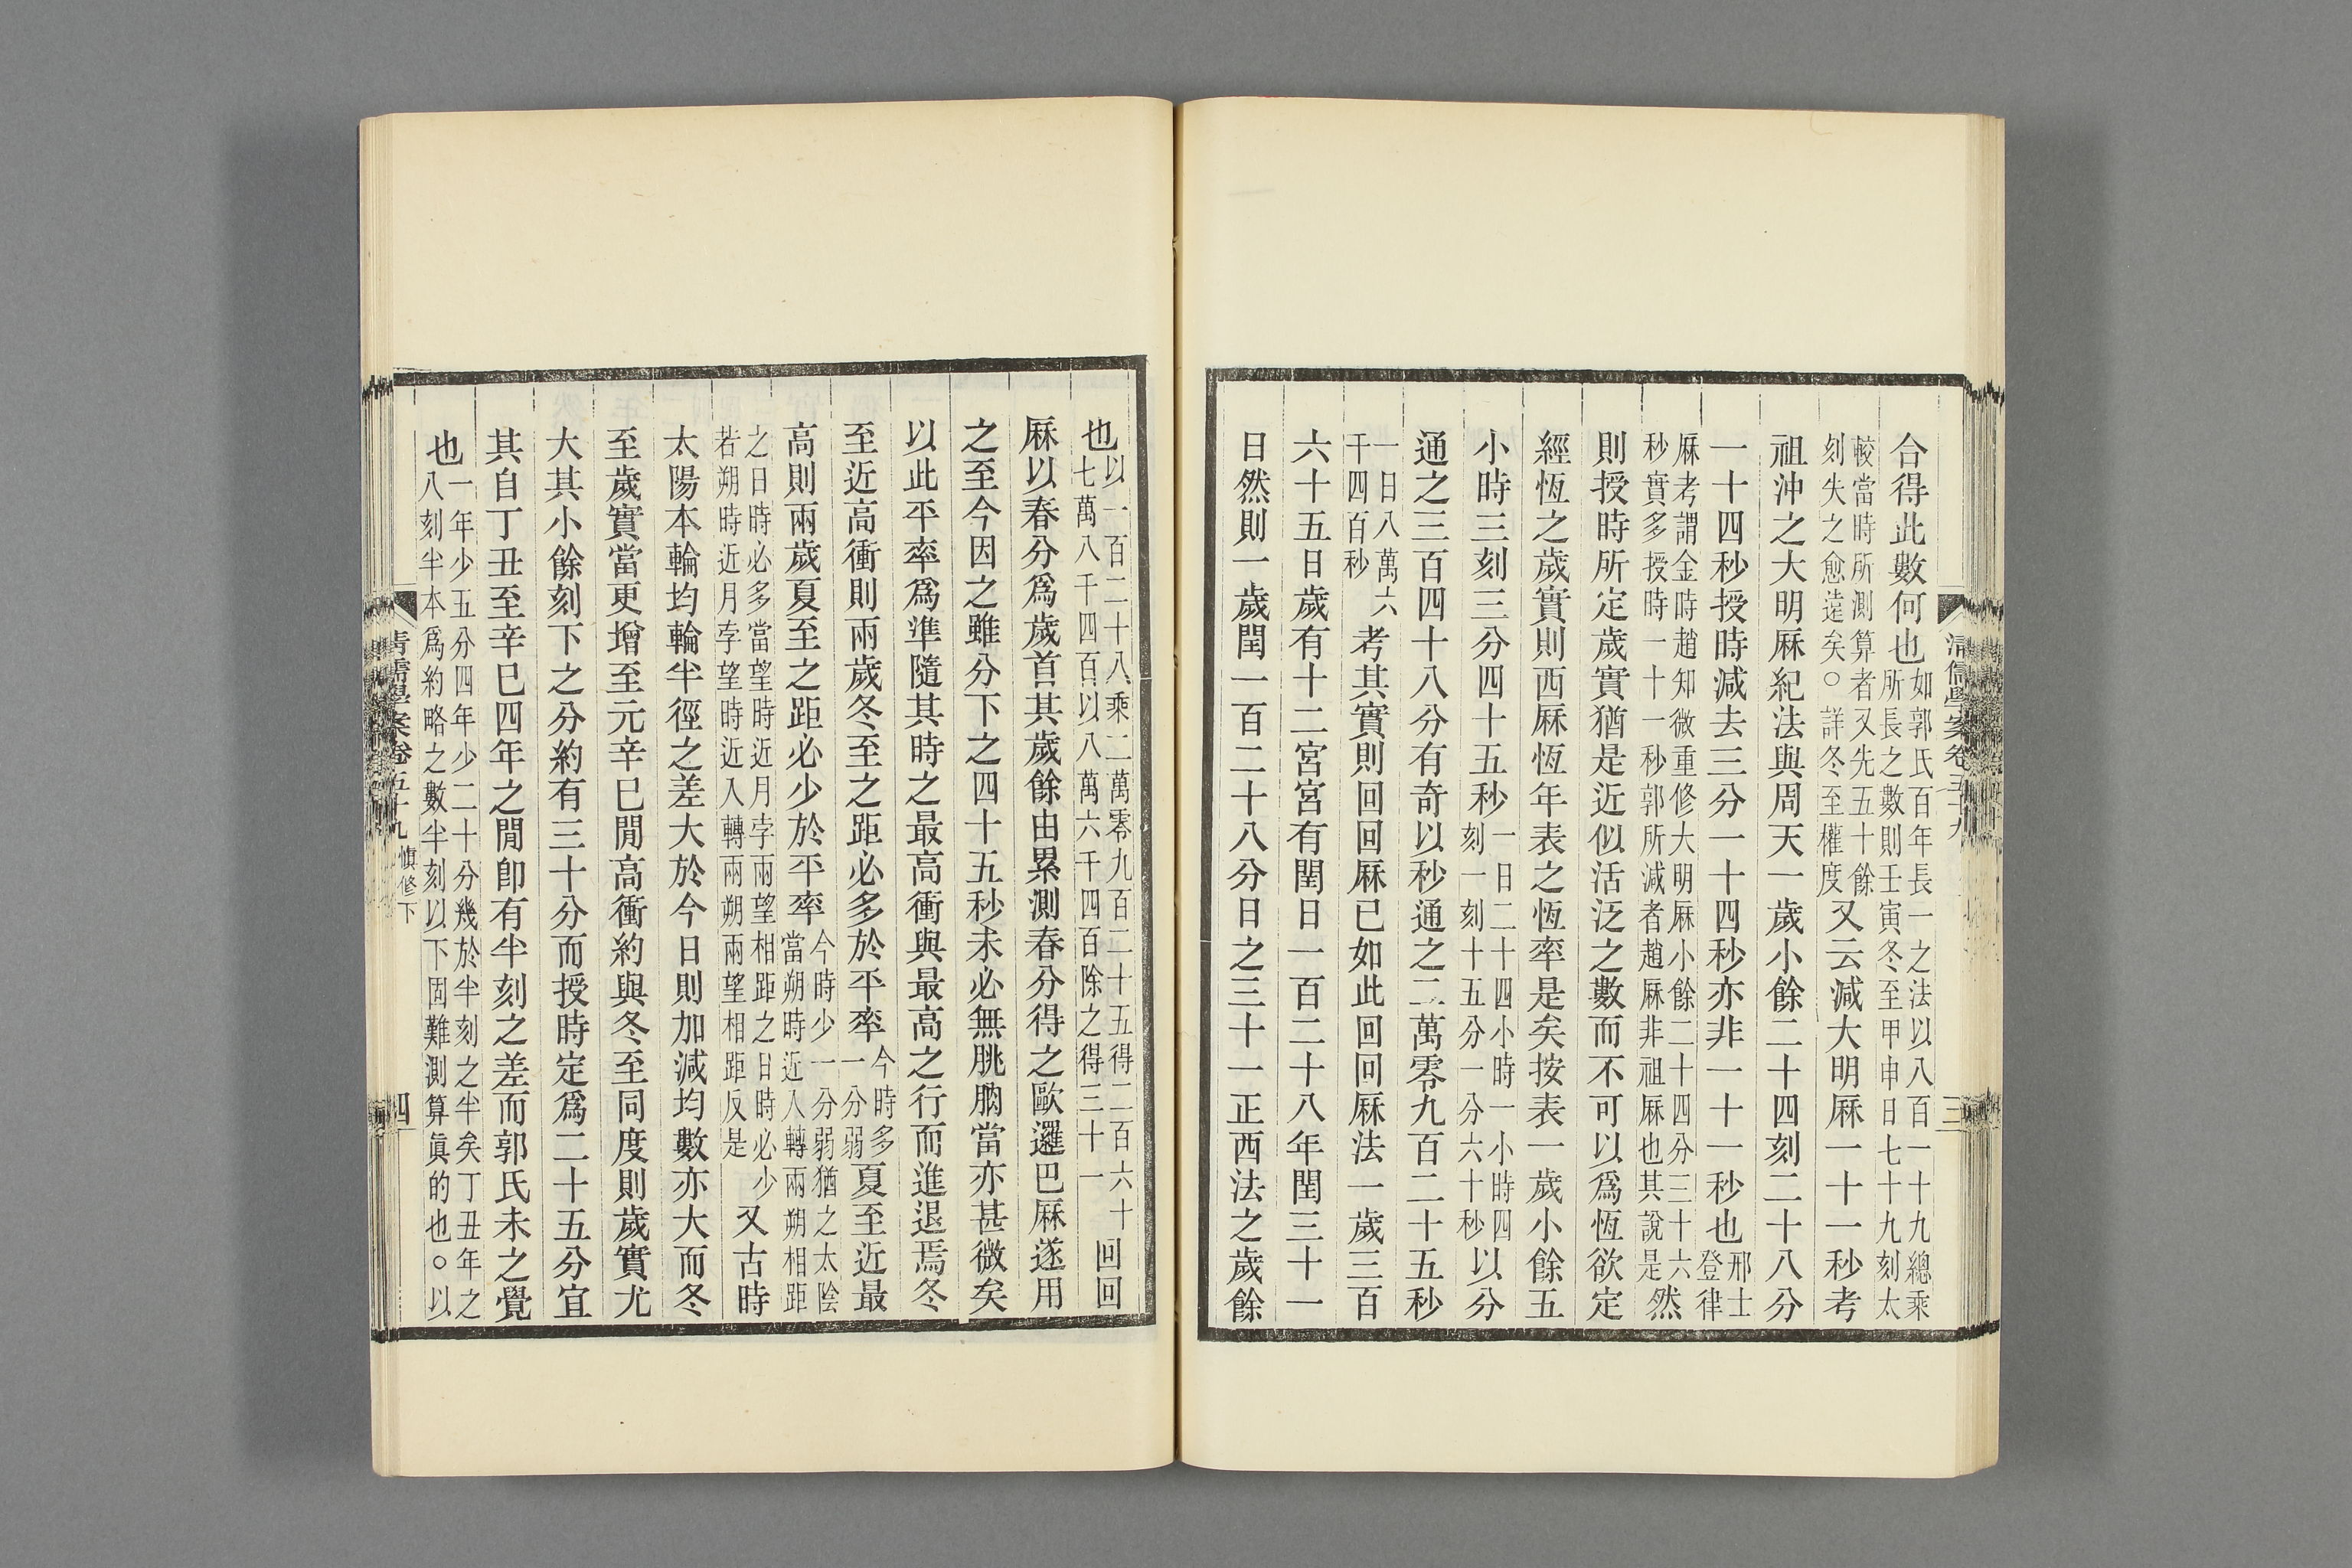 清儒學案卷五十九
三
合得此數何也如郭氏百年長一之法以八百一十九總乘所長之數則壬寅冬至甲申日七十九刻太
較當時所測算者又先五十餘刻失之愈遠矣○詳冬至權度又云減大明厤一十一秒考
祖沖之大明厤紀法與周天一歲小餘二十四刻二十八分
一十四秒授時減去三分一十四秒亦非一十一秒也邢士登律
厤考謂金時趙知微重修大明厤小餘二十四分三十六秒實多授時一十一秒郭所減者趙厤非祖厤也其說是然
則授時所定歲實猶是近似活泛之數而不可以爲恆欲定
經恆之歲實則西厤恆年表之恆率是矣按表一歲小餘五
小時三刻三分四十五秒一日二十四小時一小時四刻一刻十五分一分六十秒以分
通之三百四十八分有奇以秒通之二萬零九百二十五秒
一日八萬六千四百秒考其實則回回厤已如此回回厤法一歲三百
六十五日歲有十二宮宮有閏日一百二十八年閏三十一
日然則一歲閏一百二十八分日之三十一正西法之歲餘
也以一百二十八乘二萬零九百二十五得二百六十七萬八千四百以八萬六千四百除之得三十一回回
厤以春分爲歲首其歲餘由累測春分得之歐邏巴厤遂用
之至今因之雖分下之四十五秒未必無朓朒當亦甚微矣
以此平率爲準隨其時之最高衝與最高之行而進退焉冬
至近高衝則兩歲冬至之距必多於平率今時多一分弱夏至近最
高則兩歲夏至之距必少於平率今時少一分弱猶之太陰當朔時近入轉兩朔相距
之日時必多當望時近月孛兩望相距之日時必少若朔時近月孛望時近入轉兩朔兩望相距反是又古時
太陽本輪均輪半徑之差大於今日則加減均數亦大而冬
至歲實當更增至元辛巳閒高衝約與冬至同度則歲實尤
大其小餘刻下之分約有三十分而授時定爲二十五分宜
其自丁丑至辛巳四年之閒卽有半刻之差而郭氏未之覺
也一年少五分四年少二十分幾於半刻之半矣丁丑年之八刻半本爲約略之數半刻以下固難測算眞的也○以
清儒學案卷五十九 愼修下
四